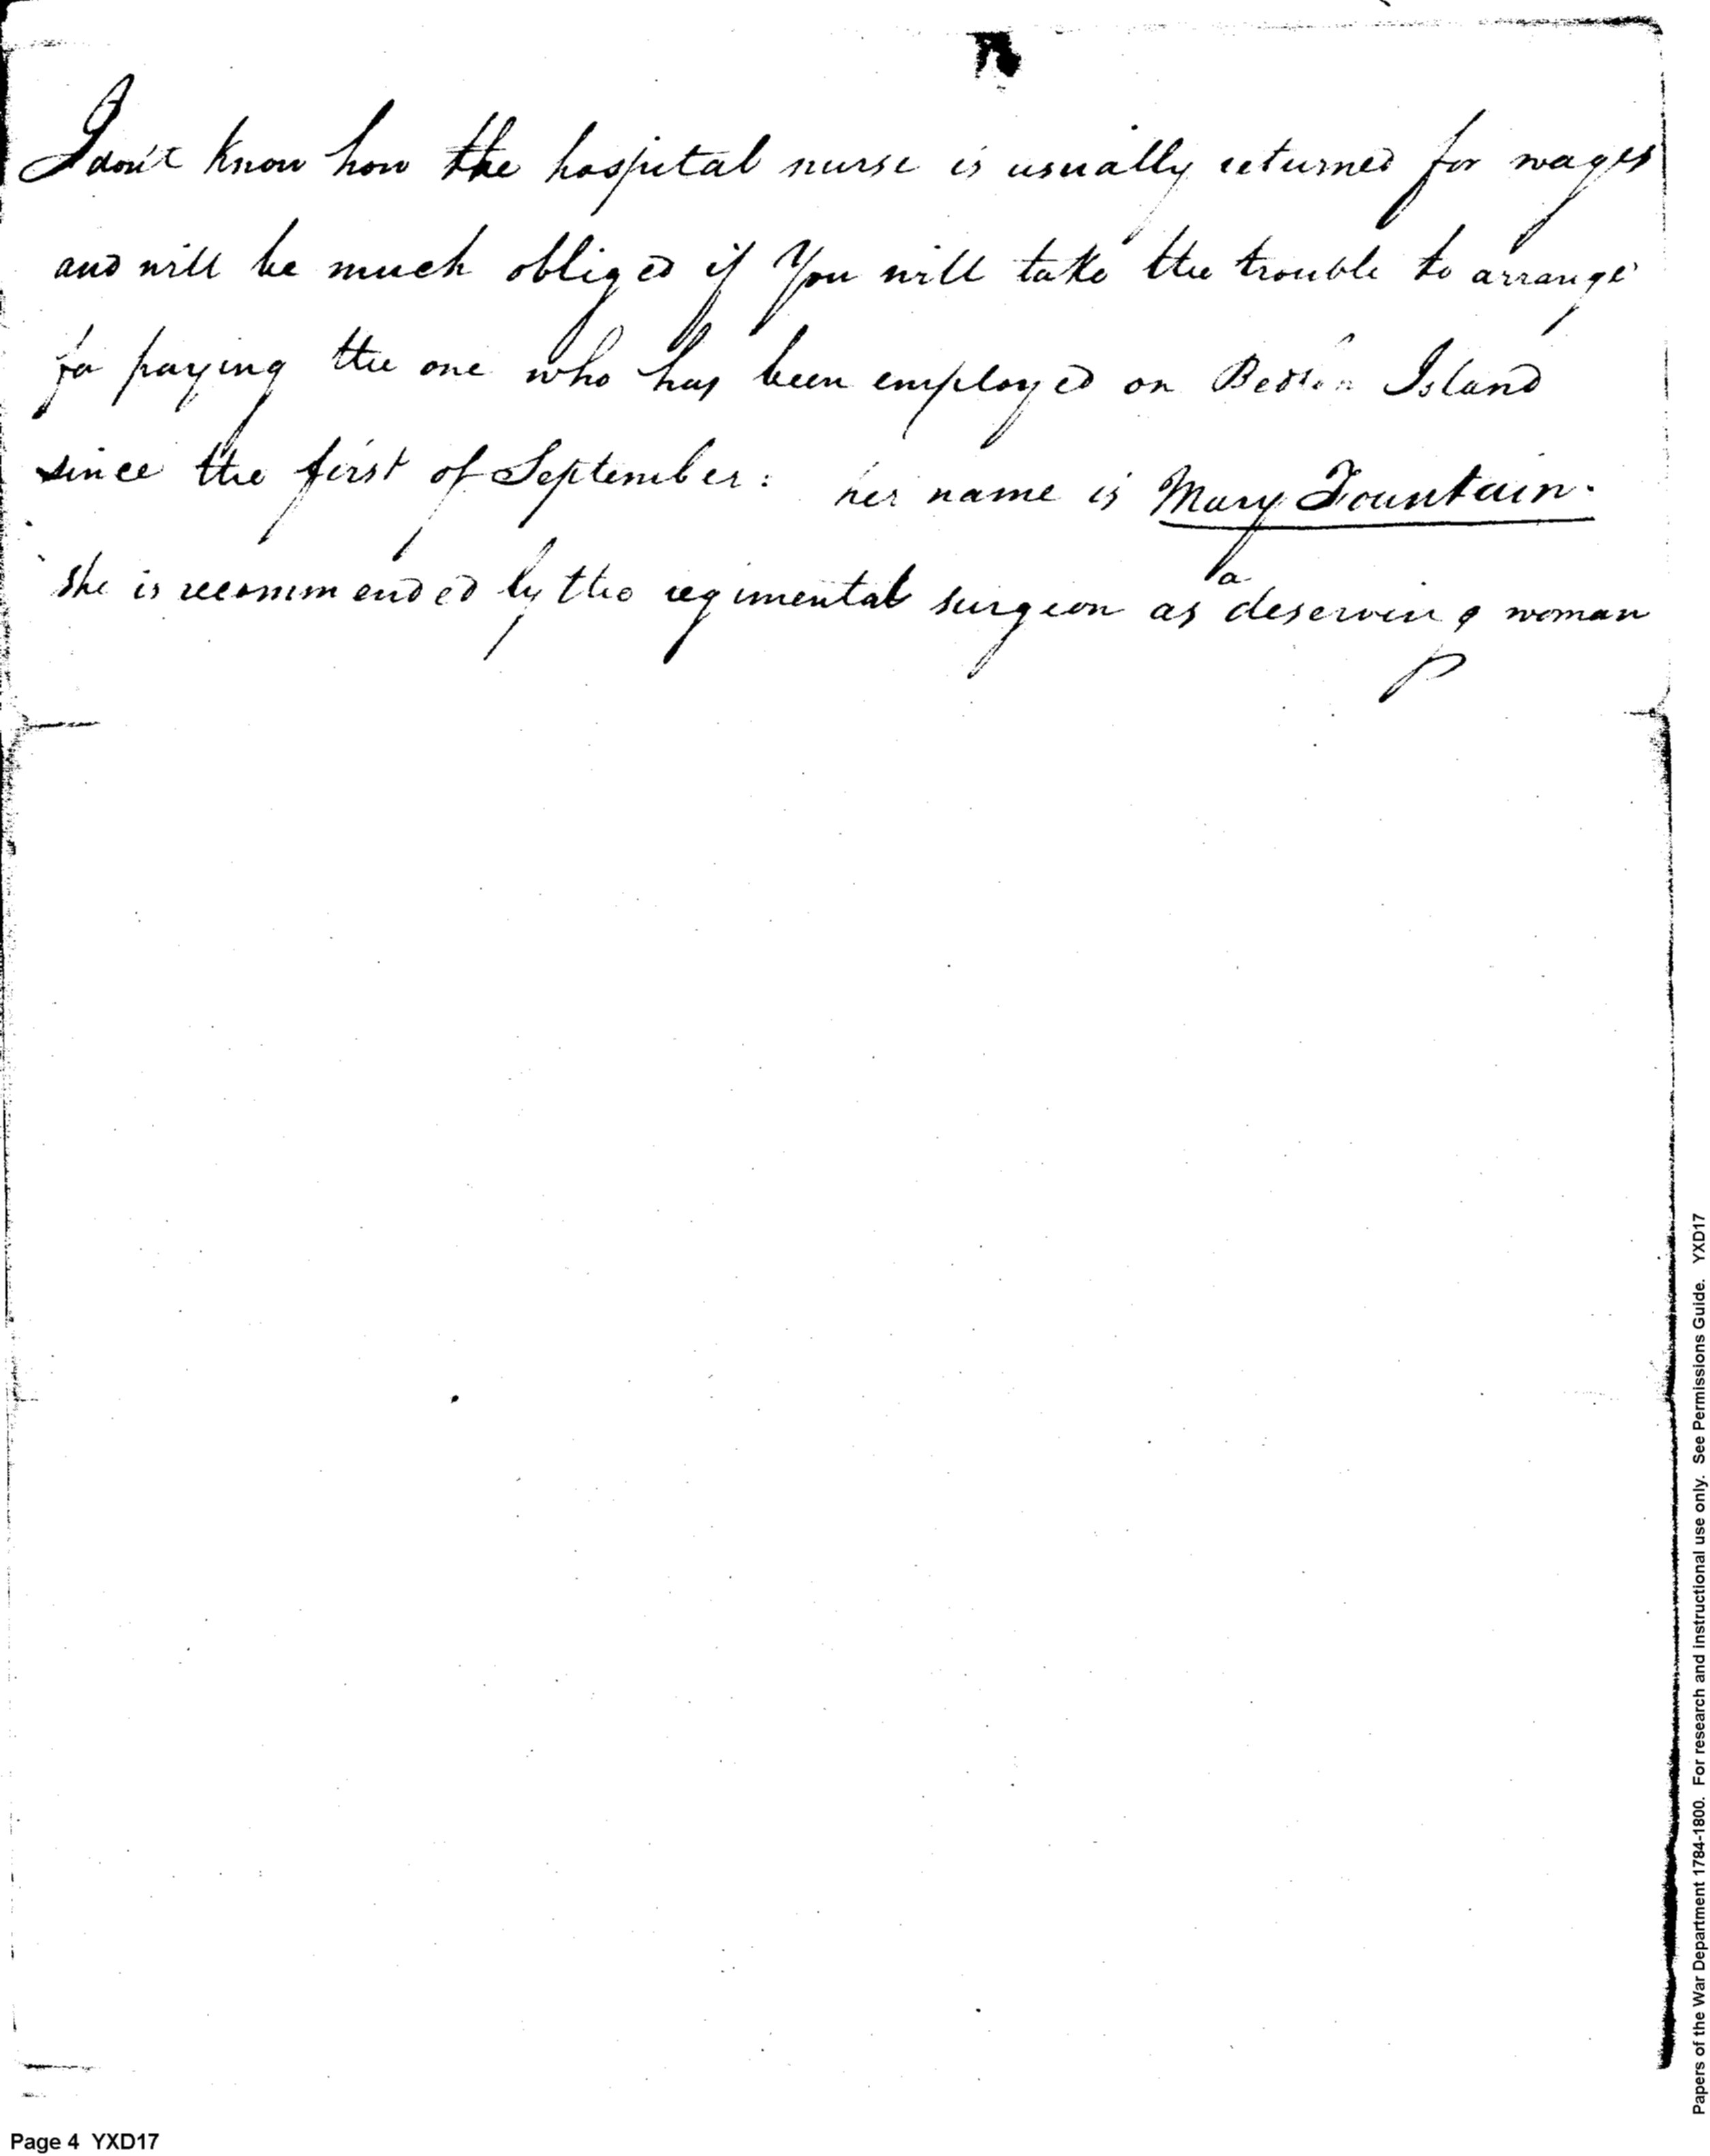 I don't know how the hospital nurse is usually returned for wages
and will be much obliged if You will take the trouble to arrange
for paying the one who has been employed on Island
since the first of September: her name is Mary Fountain.
she is recommended by the regimental surgeon as a deserving woman
Papers of the War Department 1784-1800. For research and instructional use only. See Permissions Guide. YXD17
Page 4 YXD17